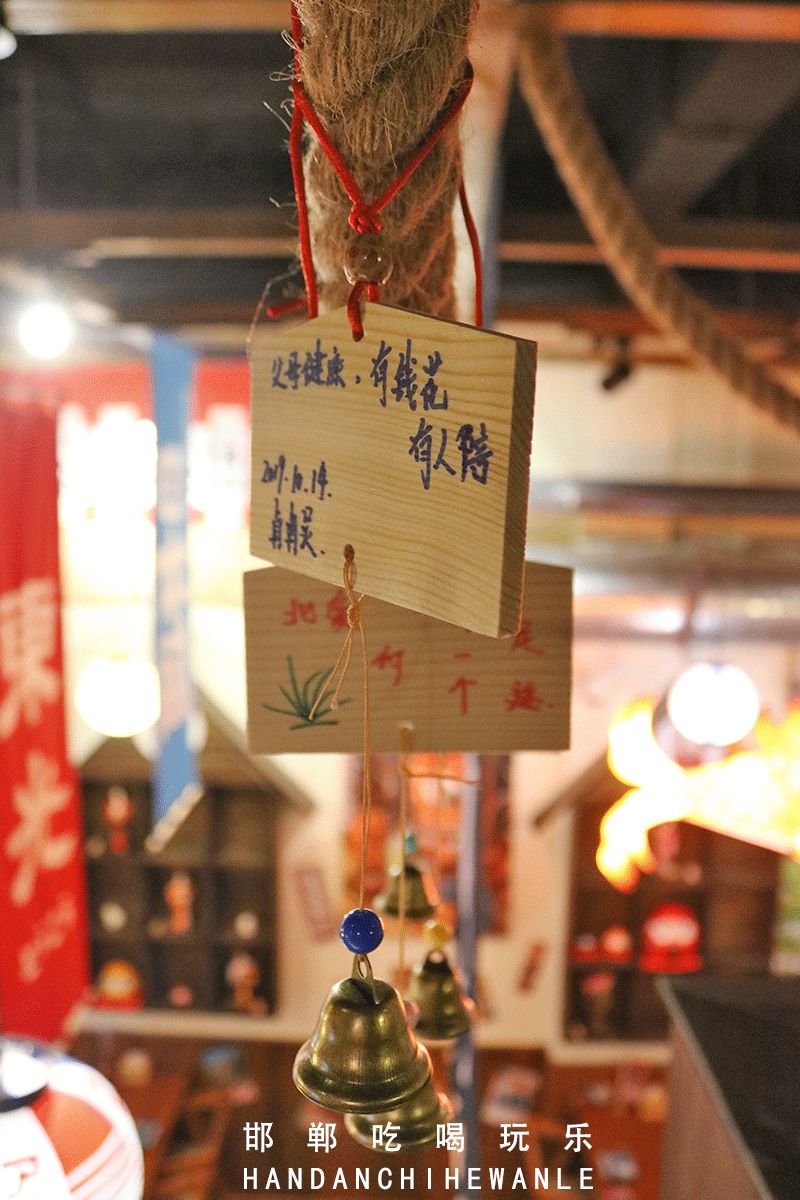 父母健康，有钱花
有人陪
2017.10.14.
冉冉吴.
竹
一
个
東
大
ア
邯郸吃喝玩乐
HANDANCHIHEWANLE